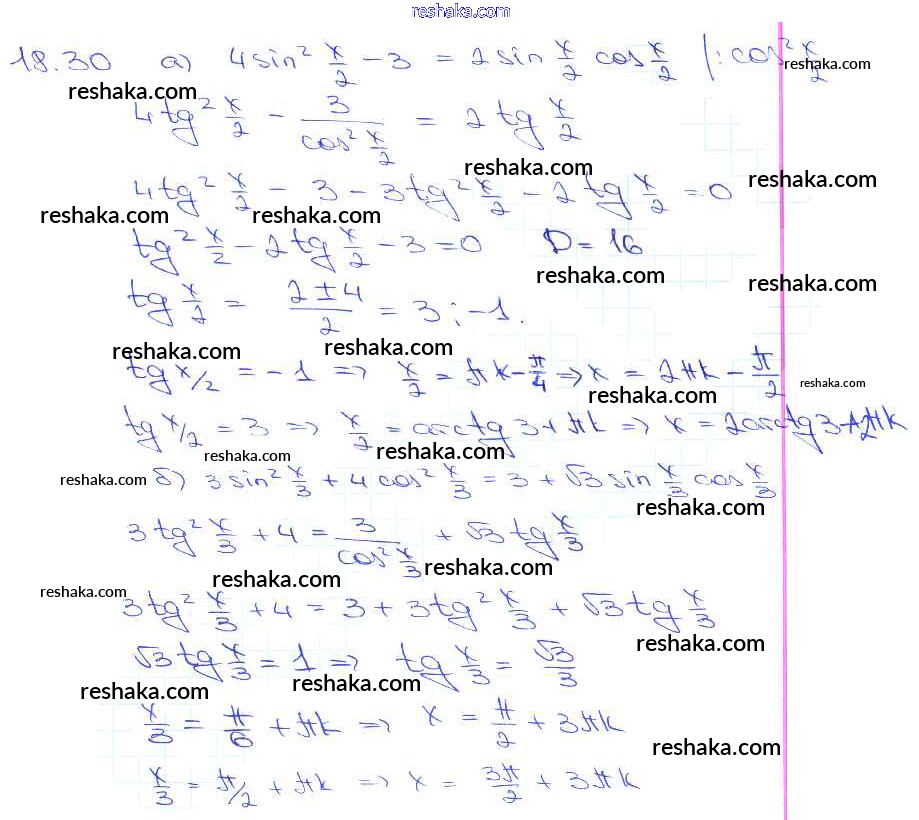 reshaka.com
18.30 а) 4sin² x/2 − 3 = 2 sin x/2 cos x/2 |: cos² x/2
reshaka.com
reshaka.com
4tg² x/2 − 3/(cos² x/2) = 2 tg x/2
reshaka.com
reshaka.com
4tg² x/2 − 3 − 3tg² x/2 − 2tg x/2 = 0
reshaka.com
reshaka.com
tg² x/2 − 2tg x/2 − 3 = 0 D = 16
reshaka.com
reshaka.com
tg x/2 = (2 ± 4)/2 = 3; −1.
reshaka.com
reshaka.com
tg x/2 = −1 => x/2 = πk − π/4 => x = 2πk − π/2
reshaka.com
reshaka.com
tg x/2 = 3 => x/2 = arctg 3 + πk => x = 2arctg 3 + 2πk
reshaka.com
reshaka.com
б) 3 sin² x/3 + 4 cos² x/3 = 3 + √3 sin x/3 cos x/3
reshaka.com
3 tg² x/3 + 4 = 3/(cos² x/3) + √3 tg x/3
reshaka.com
reshaka.com
reshaka.com
3tg² x/3 + 4 = 3 + 3tg² x/3 + √3 tg x/3
reshaka.com
√3 tg x/3 = 1 => tg x/3 = √3/3
reshaka.com
reshaka.com
x/3 = π/6 + πk => x = π/2 + 3πk
reshaka.com
x/3 = π/2 + πk => x = 3π/2 + 3πk